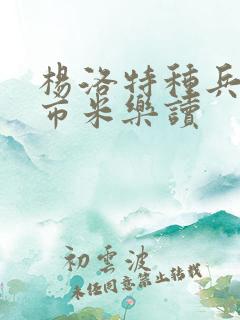 楊洛特種兵
币米樂讀
初雲波
未经同意禁止转载